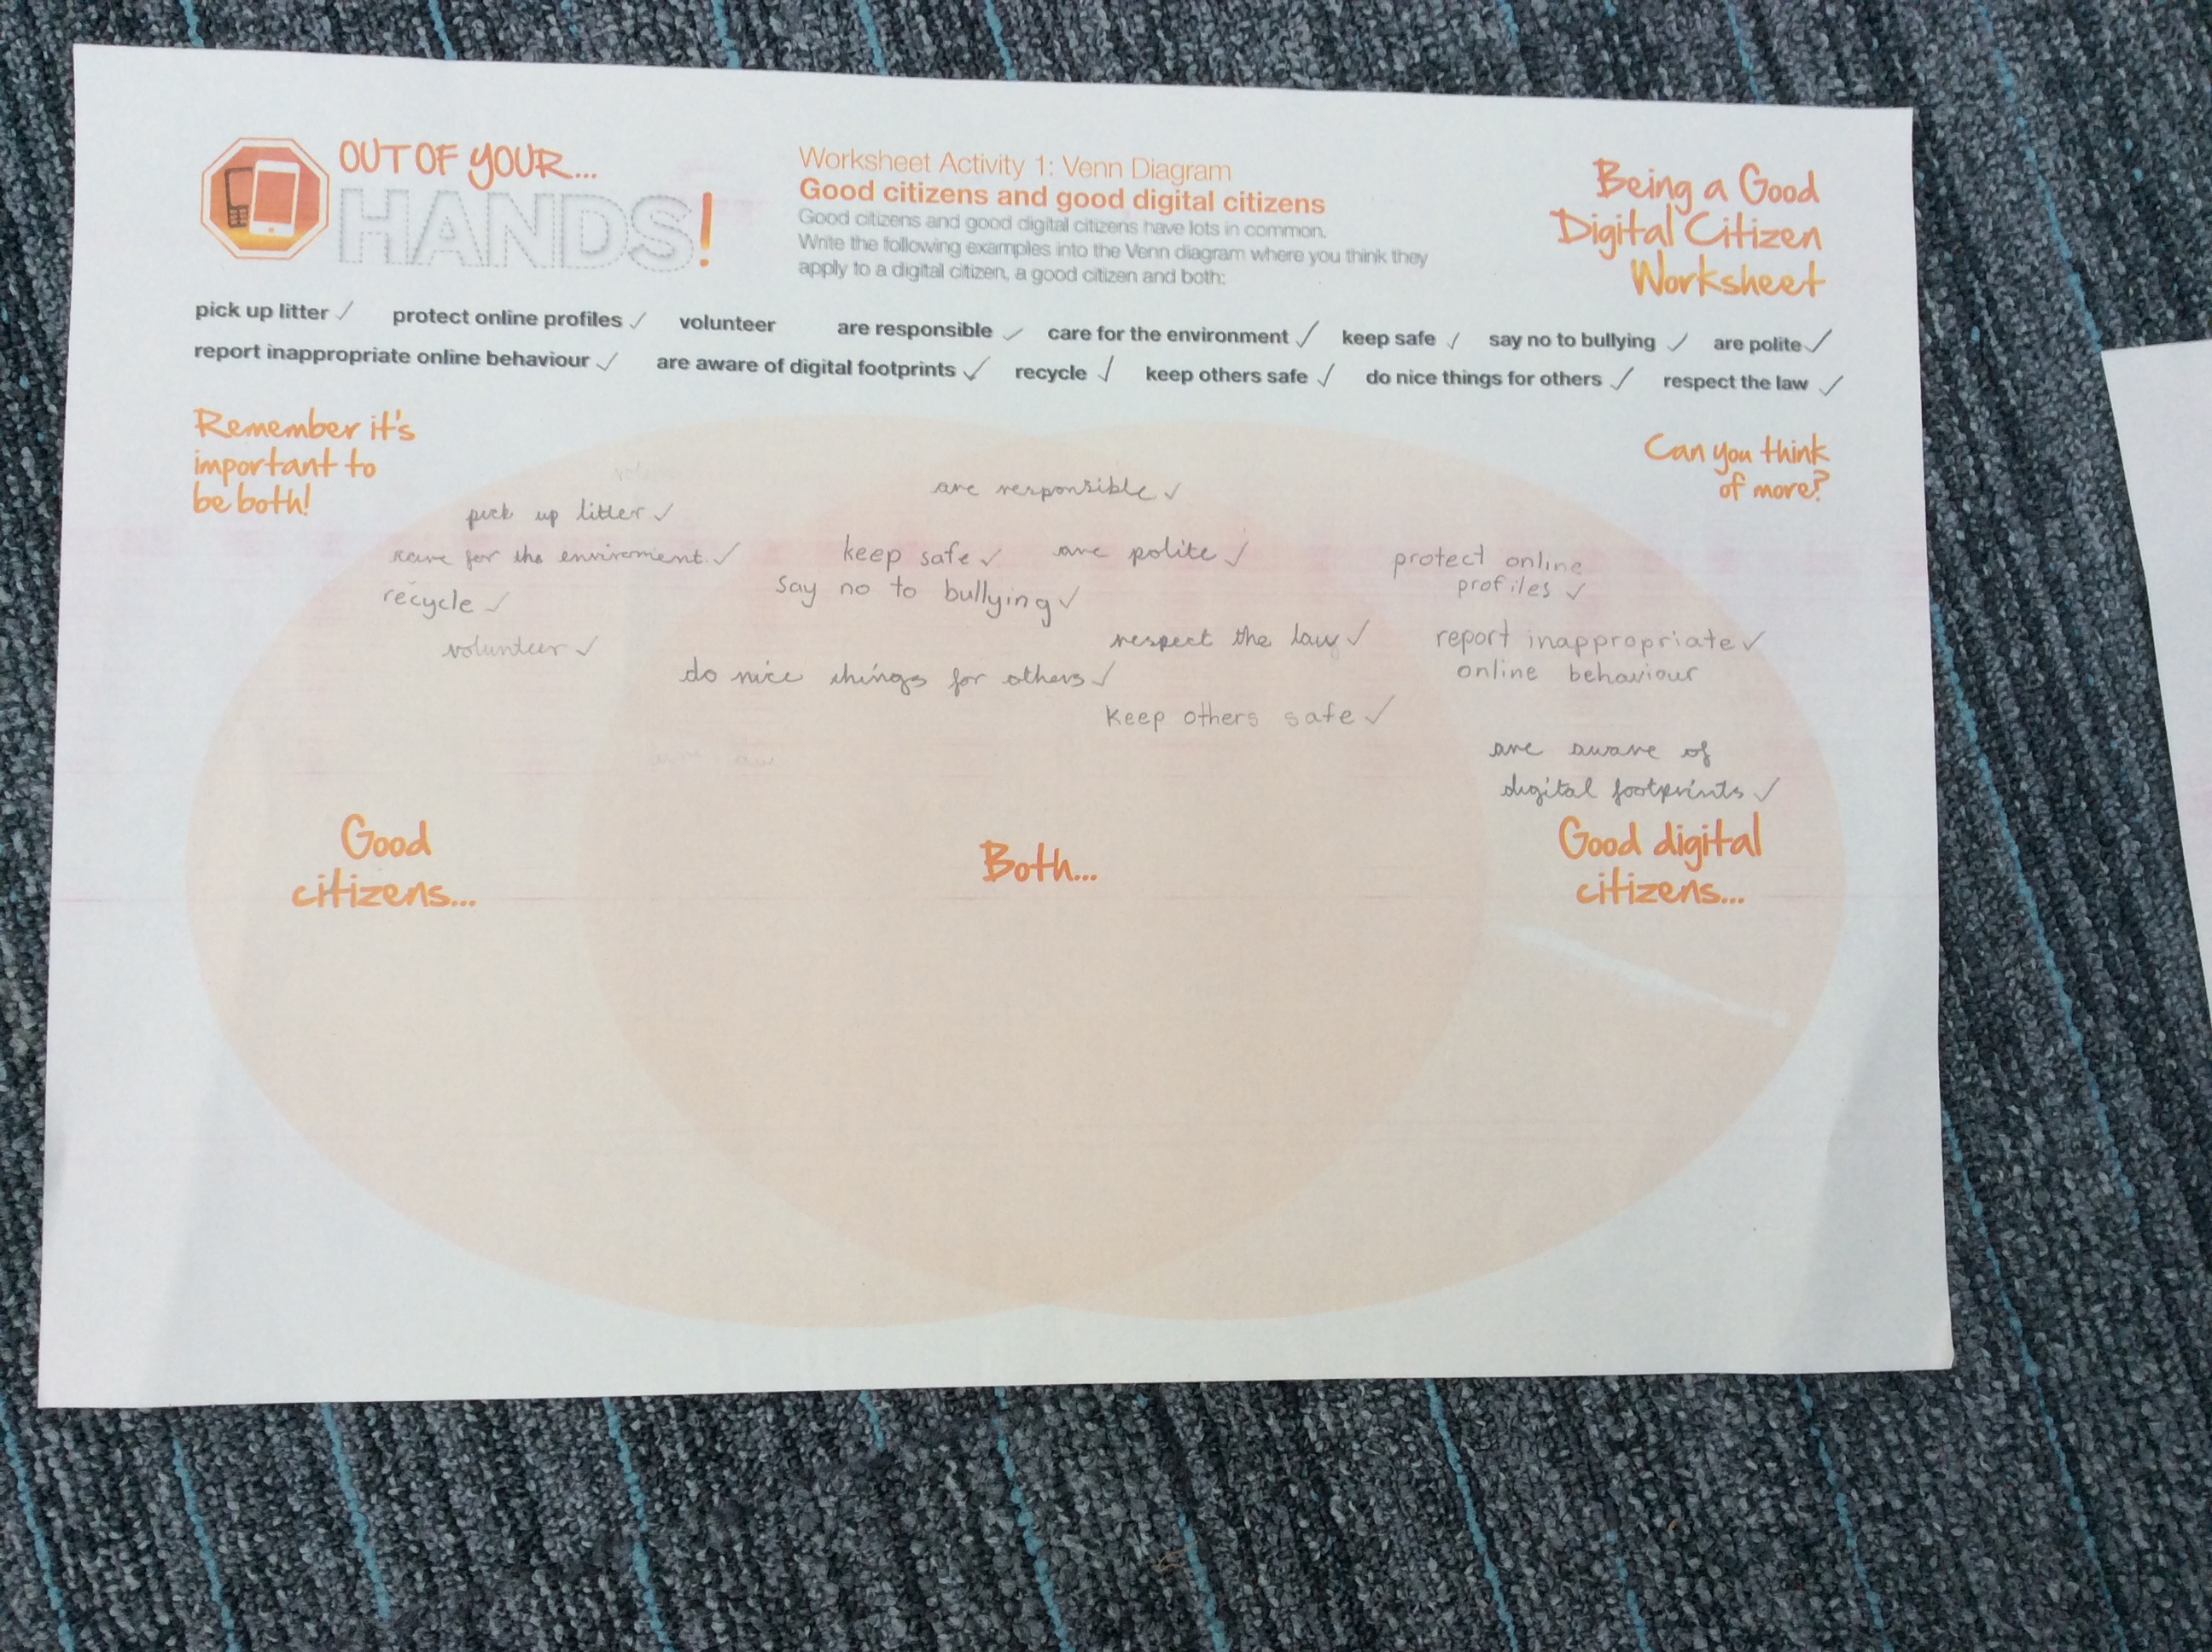 OUT OF YOUR...
HANDS!
Worksheet Activity 1: Venn Diagram
Good citizens and good digital citizens
Good citizens and good digital citizens have lots in common.
Write the following examples into the Venn diagram where you think they
apply to a digital citizen, a good citizen and both:
Being a Good
Digital Citizen
Worksheet
pick up litter ✓ protect online profiles ✓ volunteer are responsible ✓ care for the environment ✓ keep safe ✓ say no to bullying ✓ are polite ✓
report inappropriate online behaviour ✓ are aware of digital footprints ✓ recycle ✓ keep others safe ✓ do nice things for others ✓ respect the law ✓
Remember it's
important to
be both!
Can you think
of more?
pick up litter ✓
care for the enviroment. ✓
recycle ✓
volunteer ✓
Good
citizens...
are responsible ✓
keep safe ✓ are polite ✓
say no to bullying ✓
respect the law ✓
do nice things for others ✓
keep others safe ✓
Both...
protect online
profiles ✓
report inappropriate ✓
online behaviour
are aware of
digital footprints ✓
Good digital
citizens...